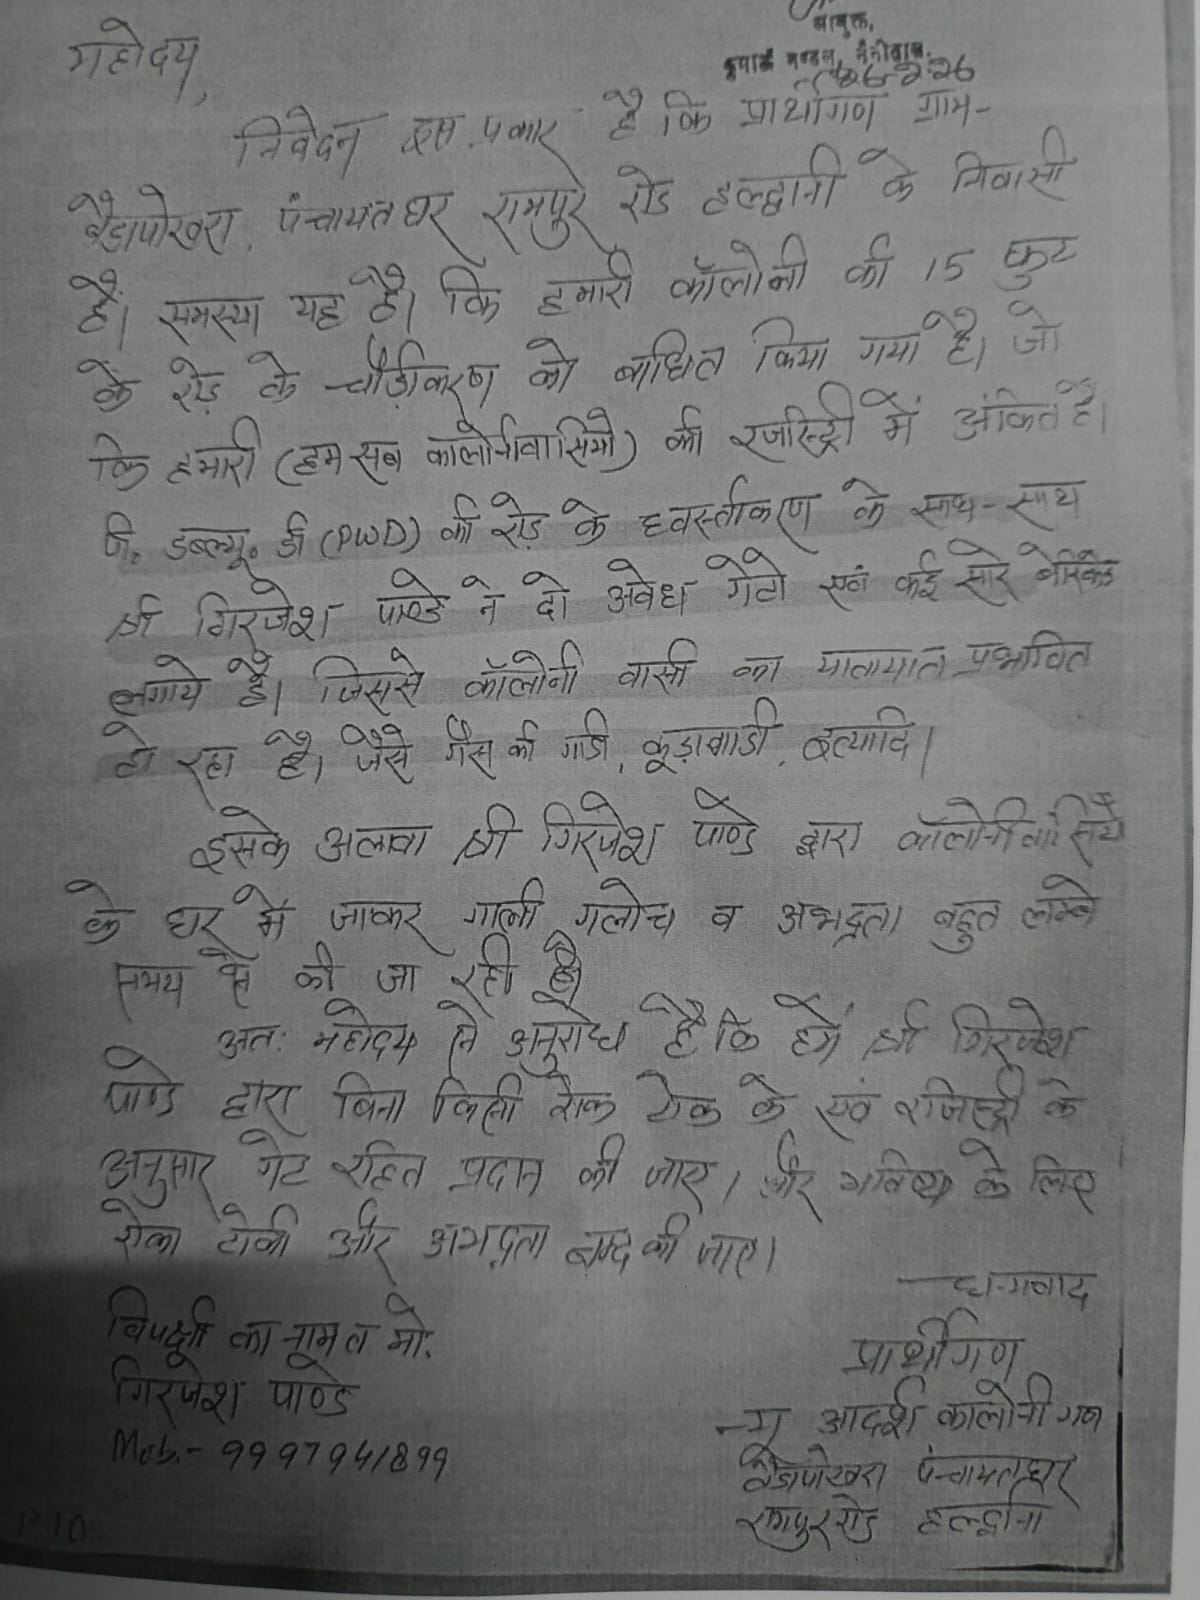 आयुक्त,
कुमाऊँ मण्डल, नैनीताल.
26-2-26
महोदय,
निवेदन इस प्रकार है कि प्रार्थीगण ग्राम-
बैड़ापोखरा, पंचायतघर रामपुर रोड हल्द्वानी के निवासी
हैं। समस्या यह है। कि हमारी कॉलोनी की 15 फुट
के रोड़ के चौड़ीकरण को बाधित किया गया है। जो
कि हमारी (हम सब कालोनीवासियों) की रजिस्ट्री में अंकित है।
पी. डब्ल्यू. डी (PWD) की रोड़ के ध्वस्तीकरण के साथ-साथ
श्री गिरजेश पाण्डे ने दो अवैध गेटो एवं कई सारे बेरिकेड
लगाये है। जिससे कॉलोनी वासी का यातायात प्रभावित
हो रहा है। जैसे गैस की गाडी, कूड़ागाडी, इत्यादि।
इसके अलावा श्री गिरजेश पाण्डे द्वारा कॉलोनीवासियों
के घर में जाकर गाली गलोच व अभद्रता बहुत लम्बे
समय से की जा रही है।
अतः महोदय से अनुरोध है कि हमें श्री गिरजेश
पाण्डे द्वारा बिना किसी रोक टोक के एवं रजिस्ट्री के
अनुसार गेट रहित प्रदान की जाए। और भविष्य के लिए
रोका टोकी और अभद्रता बन्द की जाए।
धन्यवाद
विपक्षी का नाम व मो.
गिरजेश पाण्डे
Mob.- 9997941899
प्रार्थीगण
न्यू आदर्श कालोनी गण
बैड़ापोखरा पंचायतघर
रामपुर रोड हल्द्वानी
PTO